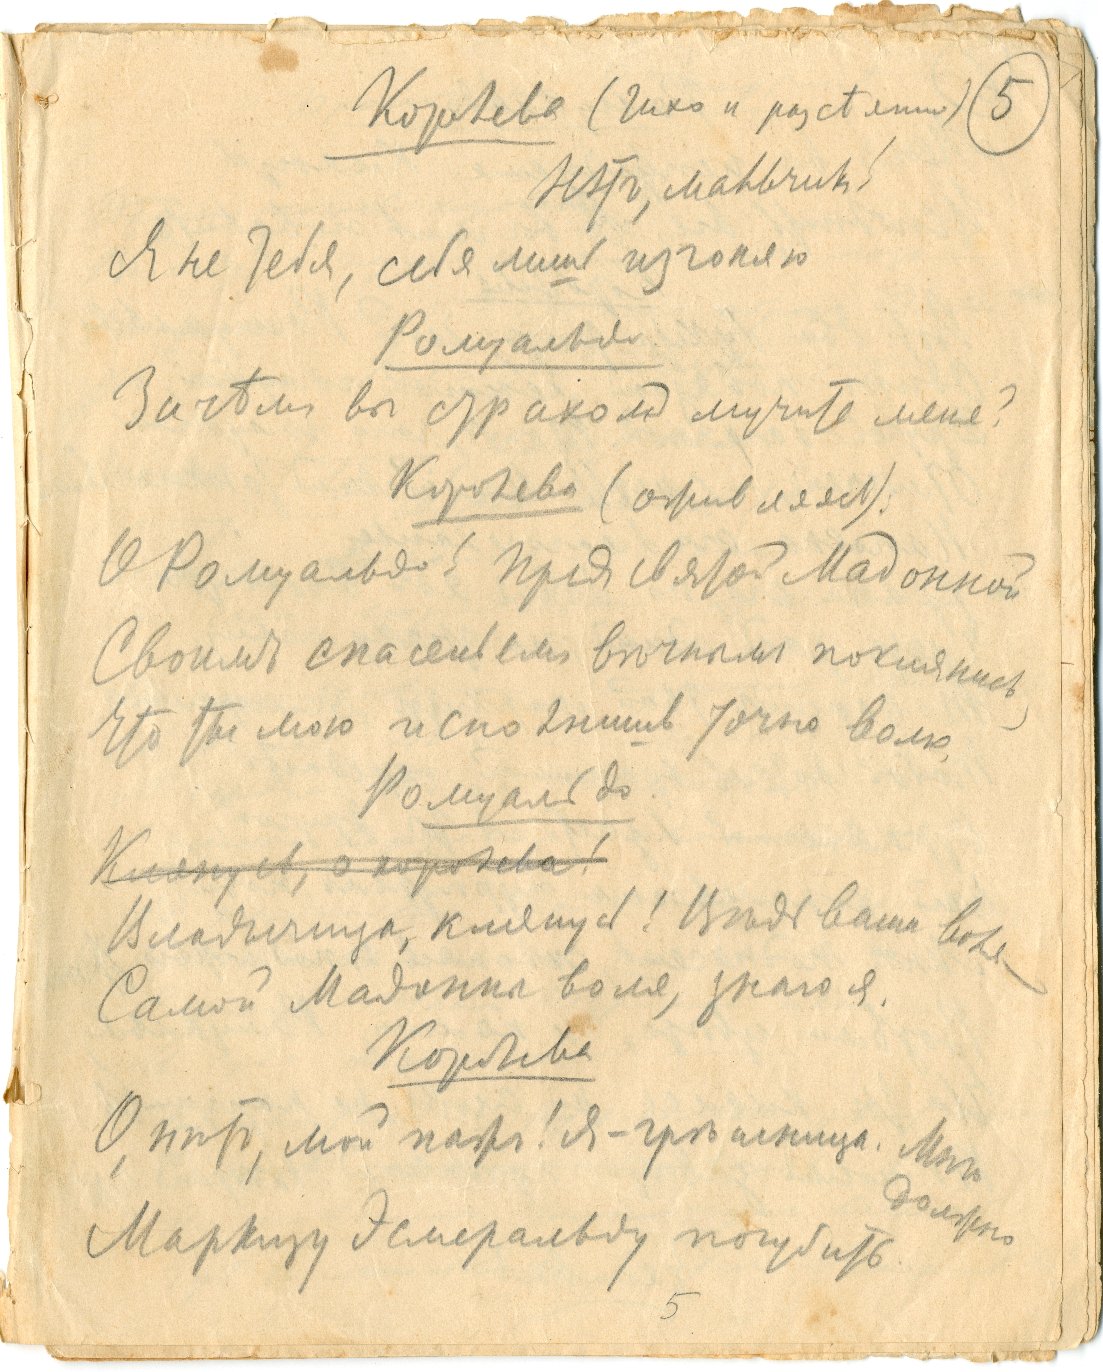 Королева (тихо и разсѣянно) 5
Нѣтъ, мальчикъ!
Я не тебя, себя лишь изгоняю
Ромуальдо.
Зачѣмъ вы страхомъ мучите меня?
Королева (оживляясь):
О Ромуальдо! Предъ святой Мадонной
Своимъ спасеньемъ вѣчнымъ поклянись,
Что ты мою исполнишь точно волю.
Ромуальдо.
Клянусь, о королева!
Владычица, клянусь! Вѣдь ваша воля –
Самой Мадонны воля, знаю я.
Королева
О, нѣтъ, мой пажъ! Я – грѣшница. Мнѣ
должно
Маркизу Эсмеральду погубить.
5